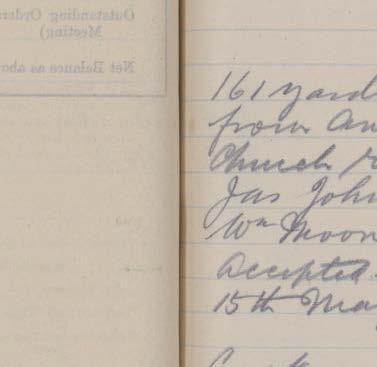 Outstanding Orders
Meeting)
Net Balance as abov
161 yard
from an
Church R
Jas John
Wm Moon
Accepted
15th Ma